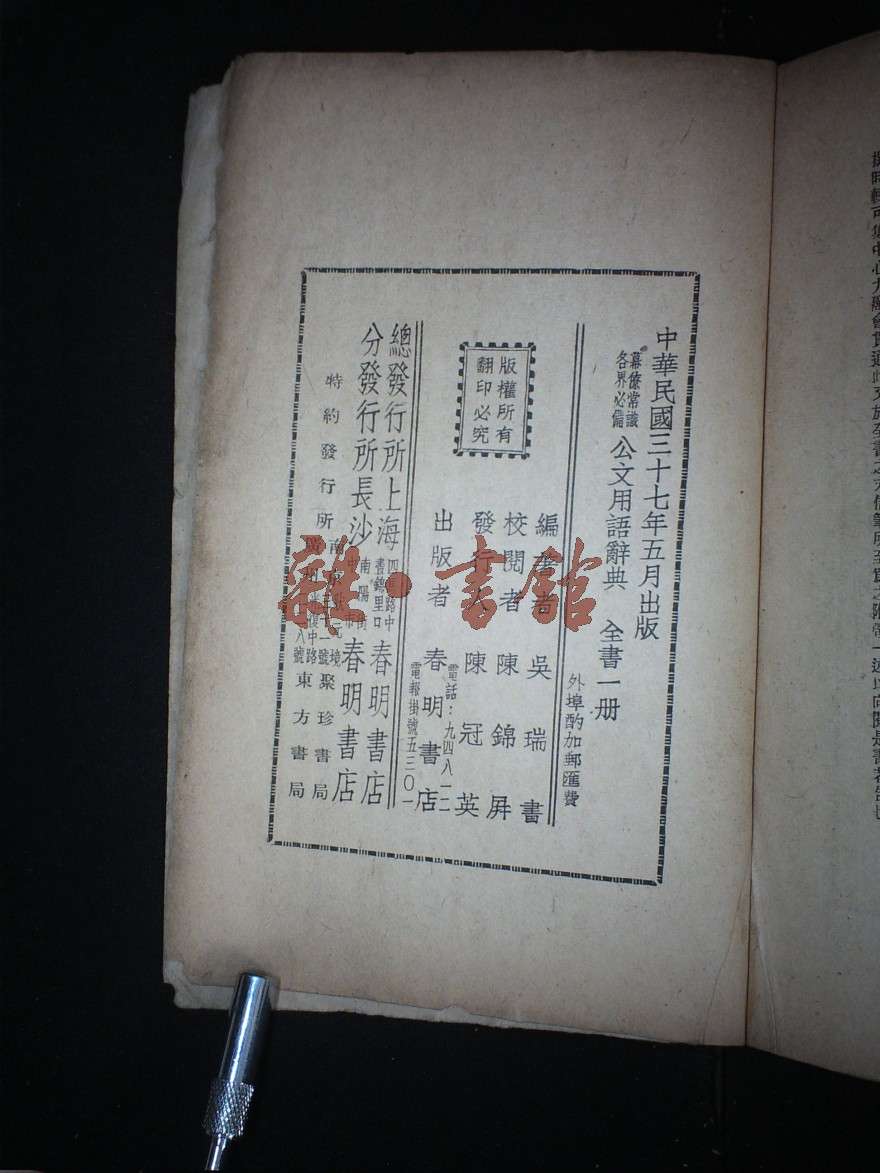 中華民國三十七年五月出版
幕僚常識
各界必備
公文用語辭典 全書一册
外埠酌加郵匯費
版權所有
翻印必究
編著者 吳瑞書
校閱者 陳錦屏
發行人 陳冠英
出版者 春明書店
電話：九四八一二
電報掛號五三〇一
總發行所上海 四馬路中
晝錦里口 春明書店
分發行所長沙 南陽街
中市 春明書店
特約發行所
南京 境
一號 聚珍書局
廣州 復中路
八號 東方書局
雜·書館